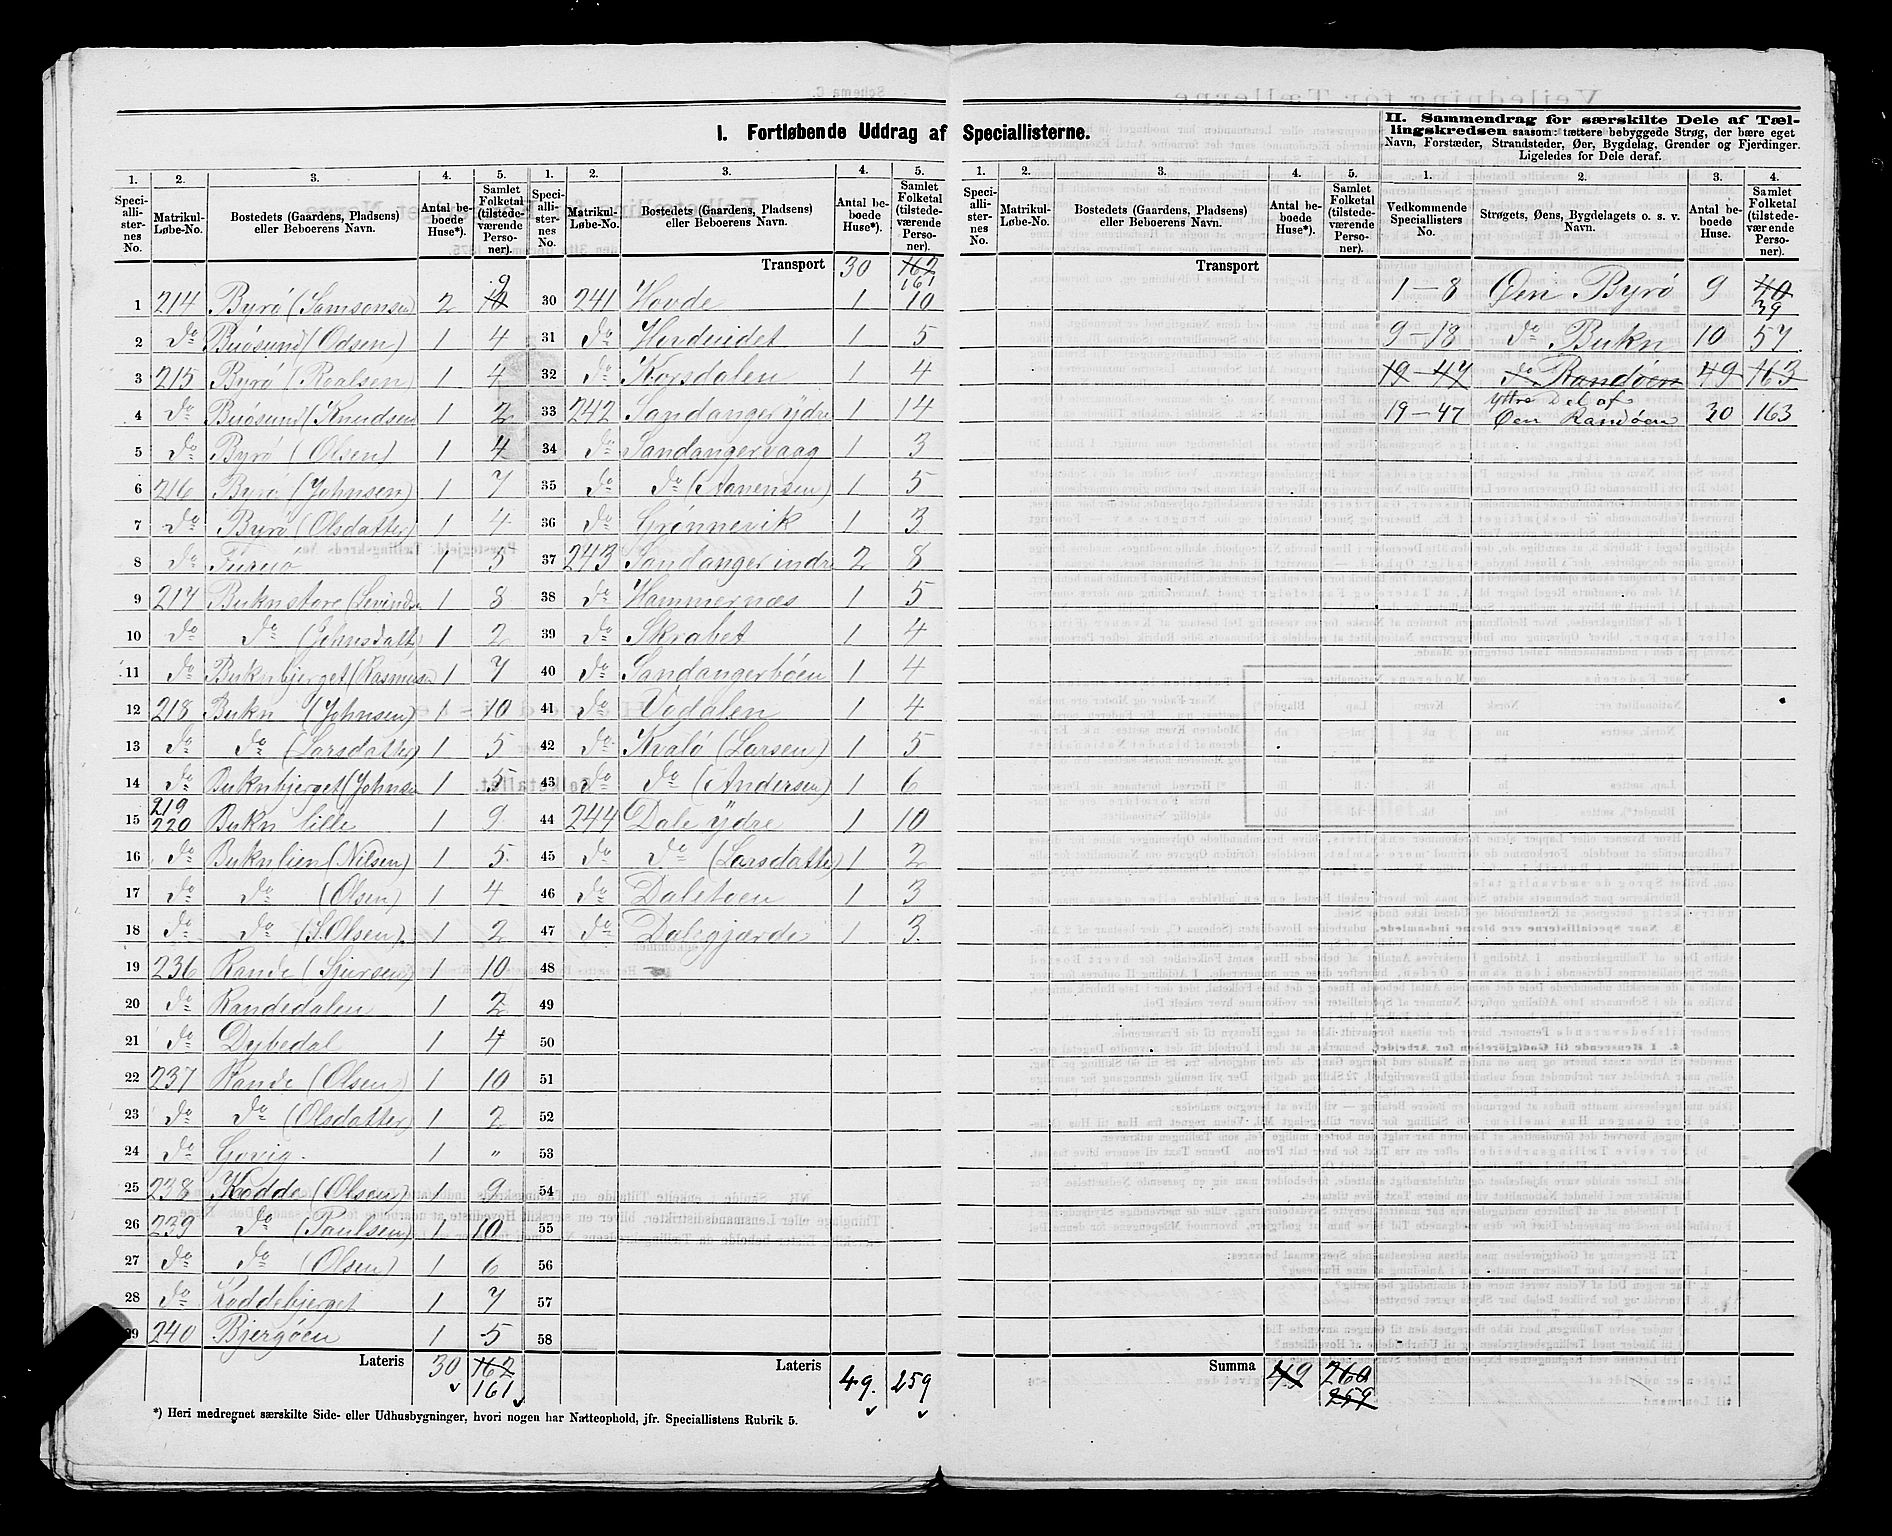 I. Fortløbende Uddrag af Speciallisterne.
1. 2. 3. 4. 5.
Speciallisternes No. Matrikul-Løbe-No. Bostedets (Gaardens, Pladsens) eller Beboerens Navn. Antal beboede Huse*). Samlet Folketal (tilstedeværende Personer).
1 214 Byrø (Samsonsen) 2 10 9
2 do Buøsund (Odsen) 1 4
3 215 Byrø (Roalsen) 1 4
4 do Buøsund (Knudsen 1 2
5 do Byrø (Olsen) 1 4
6 216 Byrø (Johnsen) 1 7
7 do Byrø (Olsdatter) 1 4
8 do 1 5
9 217 Bukn store 1 8
10 do do (Johnsdatt) 1 2
11 do Buknbjerget (Rasmuse 1 7
12 218 Bukn (Johnsen) 1 10
13 do do (Larsdatter) 1 5
14 do Buknbjerget (Johnse 1 5
15 219 220 Bukn lille 1 9
16 do Buknlien (Nilsen) 1 5
17 do do (Olsen) 1 4
18 do do (S. Olsen). 1 2
19 236 Rande (Sjursen) 1 10
20 do Randedalen 1 2
21 do Dybedal 1 4
22 237 Rande (Olsen) 1 10
23 do do (Olsdatter) 1 2
24 do Govig. 1 "
25 238 Kodde (Olsen) 1 9
26 239 do (Paulsen) 1 10
27 do do (Olsen) 1 6
28 do Koddebjerget 1 7
29 240 Bjergøen 1 5
Lateris 30 162 161
*) Heri medregnet særskilte Side- eller Udhusbygninger, hvori nogen har Natteophold, jfr. Speciallistens Rubrik 5.
1. 2. 3. 4. 5.
Speciallisternes No. Matrikul-Løbe-No. Bostedets (Gaardens, Pladsens) eller Beboerens Navn. Antal beboede Huse*). Samlet Folketal (tilstedeværende Personer).
Transport 30 162 161
30 241 Hovde 1 10
31 do Hovdeeidet 1 5
32 do Korsdalen 1 4
33 242 Sandanger ydre 1 14
34 do Sandangervaag 1 3
35 do do (Aanensen) 1 5
36 do Grønnevik 1 3
37 243 Sandanger indre 2 8
38 do Hammernæs 1 5
39 do Skrabet 1 4
40 do Sandangerbøen 1 4
41 do Vodalen 1 4
42 do Kvalø (Larsen) 1 5
43 do do (Andersen) 1 6
44 244 Dale ydre 1 10
45 do do (Larsdatter) 1 2
46 do Daletoen 1 3
47 do Dalegjærde 1 3.
48
49
50
51
52
53
54
55
56
57
58
Lateris 49. 259
1. 2. 3. 4. 5.
Speciallisternes No. Matrikul-Løbe-No. Bostedets (Gaardens, Pladsens) eller Beboerens Navn. Antal beboede Huse*). Samlet Folketal (tilstedeværende Personer).
Transport
Summa 49 260 259
II. Sammendrag for særskilte Dele af Tællingskredsen saasom: tættere bebyggede Strøg, der bære eget Navn, Forstæder, Strandsteder, Øer, Bygdelag, Grender og Fjerdinger. Ligeledes for Dele deraf.
1. 2. 3. 4.
Vedkommende Speciallisters No. Strøgets, Øens, Bygdelagets o. s. v. Navn. Antal beboede Huse. Samlet Folketal (tilstedeværende Personer).
1-8 Øen Byrø 9 40 39
9-18 do Bukn 10 57
19-47 do Randøen 49 163
19-47 yttre Del af Øen Randøen 30 163